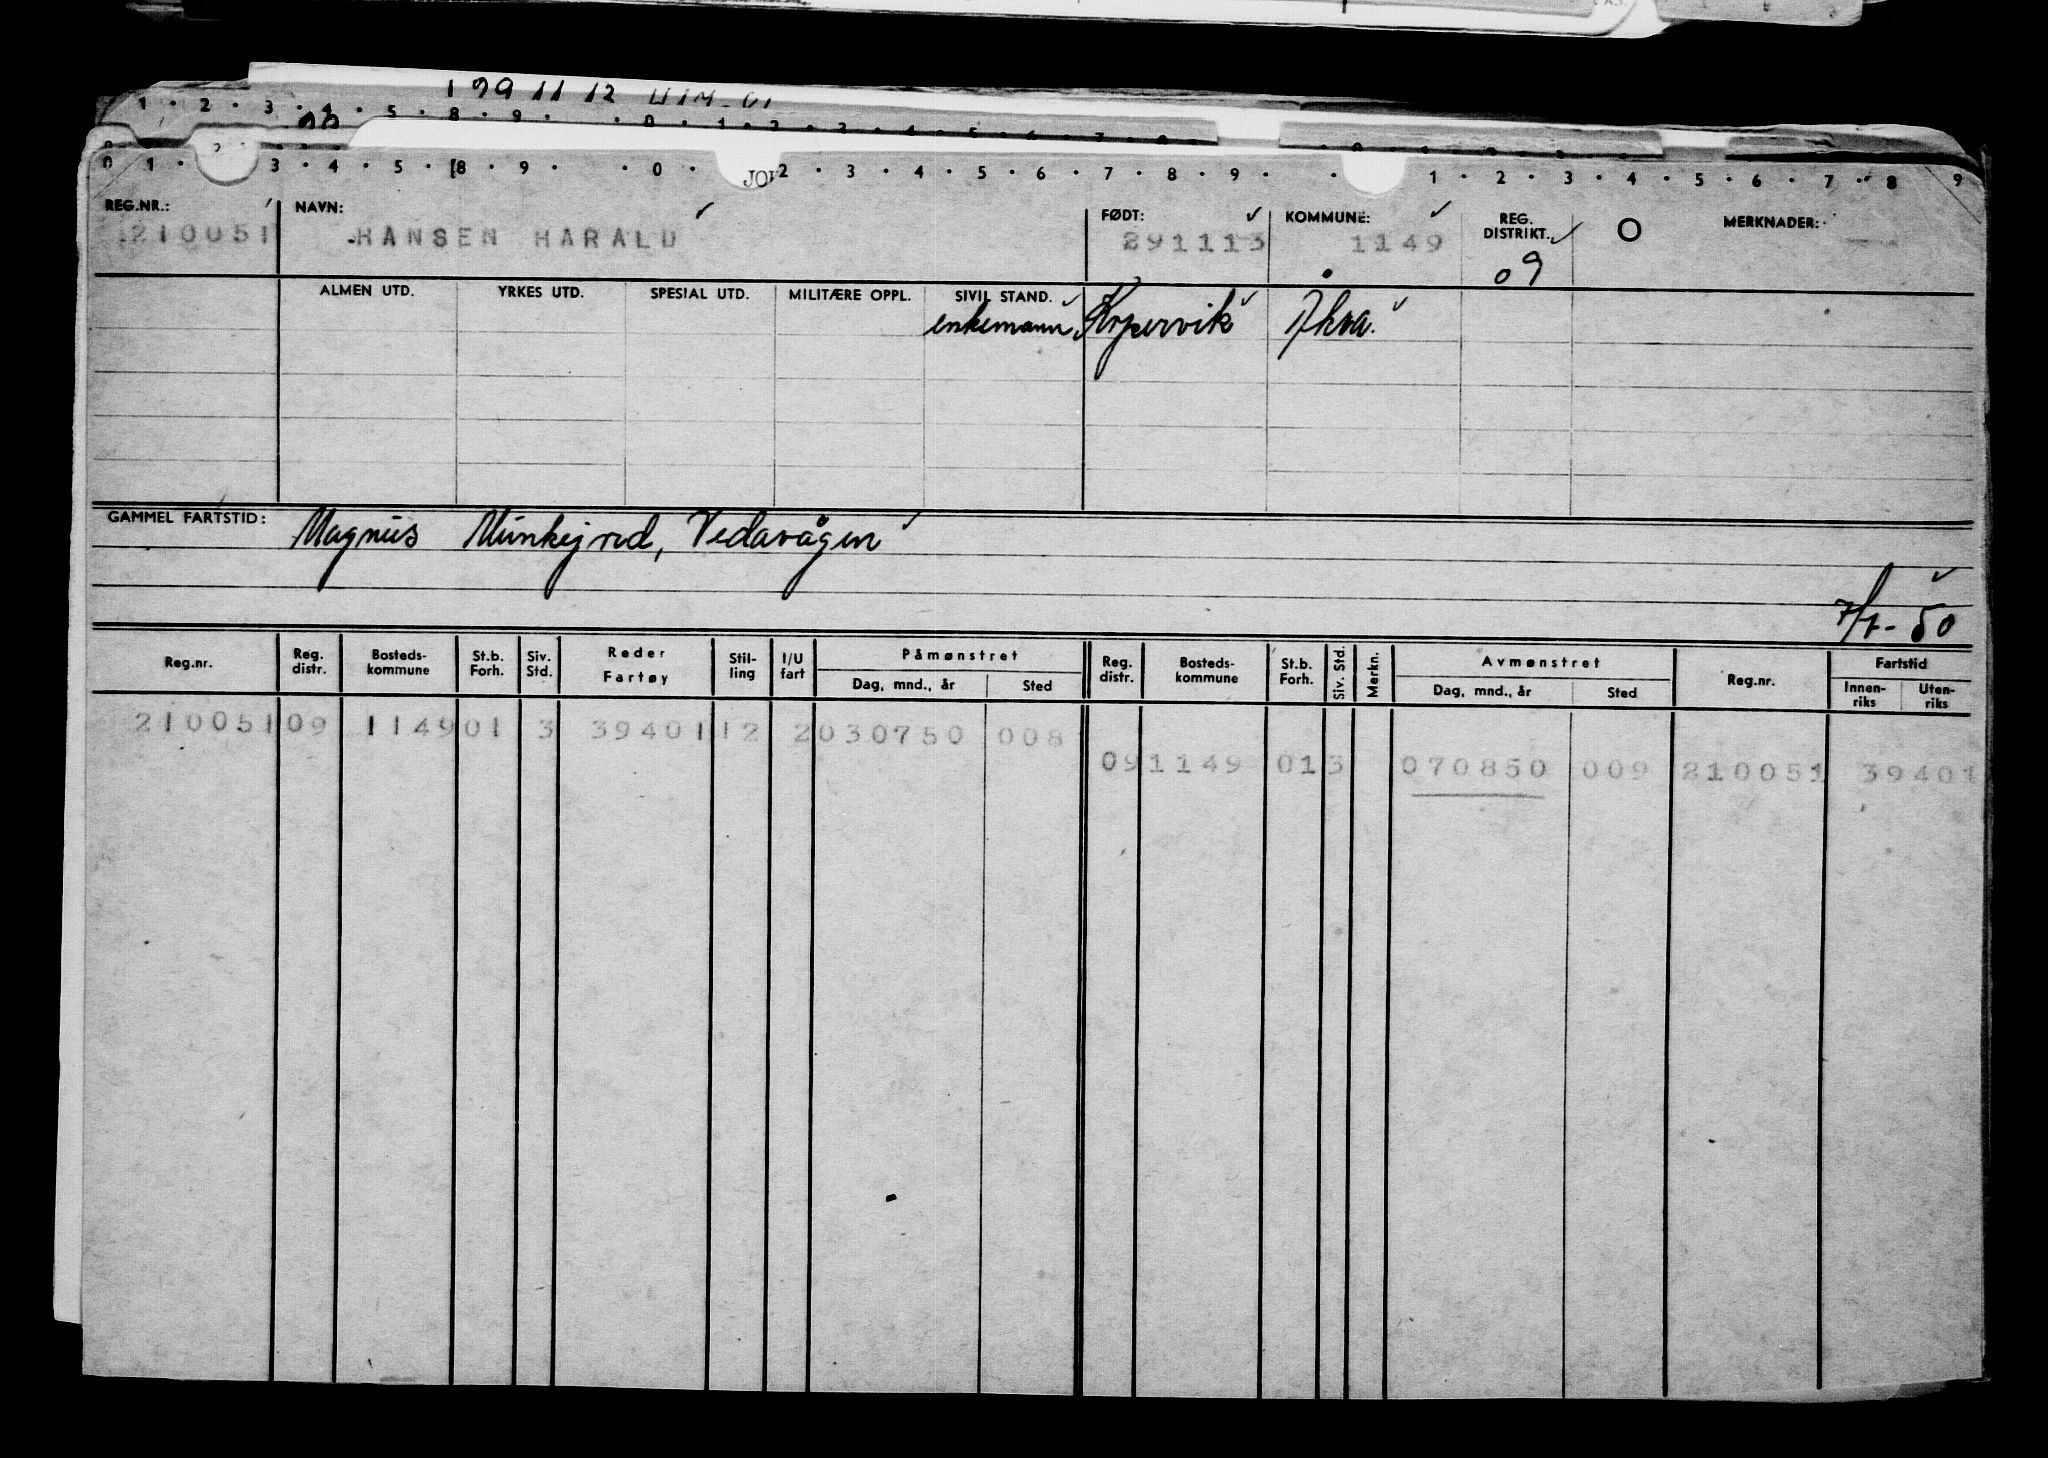 1 99 11 12
1 · 2 · 3 · 4 · 5 · 8 · 9 · · 0 · 1 · 2 · 3 · 4 · 5 · 6 · 7 · 8
0 1 · 3 · 4 · 5 · 8 · 9 · · 0 · 2 · 3 · 4 · 5 · 6 · 7 · 8 · 9 · · 1 · 2 · 3 · 4 · 5 · 6 · 7 · 8 9
REG.NR.: NAVN: FØDT: KOMMUNE: REG. DISTRIKT. O MERKNADER:
210051 HANSEN HARALD 291113 1149 09
ALMEN UTD. YRKES UTD. SPESIAL UTD. MILITÆRE OPPL. SIVIL STAND.
enkemann Kopervik Åkra.
GAMMEL FARTSTID: Magnus Munkejord, Vedavågen
7/1-50
Reg.nr. Reg. distr. Bosteds-kommune St.b. Forh. Siv. Std. Reder Fartøy Stil-ling I/U fart Påmønstret Reg. distr. Bosteds-kommune St.b. Forh. Siv. Std. Merkn. Avmønstret Reg.nr. Fartstid
Dag, mnd., år Sted Dag, mnd., år Sted Innen-riks Uten-riks
210051 09 1149 01 3 39401 12 2 030750 008
09 1149 01 3 070850 009 210051 39401